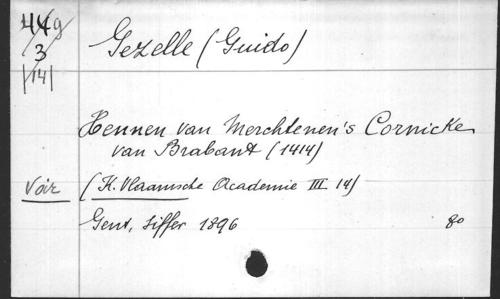 449
3
|14|
Gezelle (Guido)
Hennen van Merchtenen's Cornicke
van Brabant (1414)
Voir
(K. Vlaamsche Academie III 14)
Gent, Siffer 1896
8o